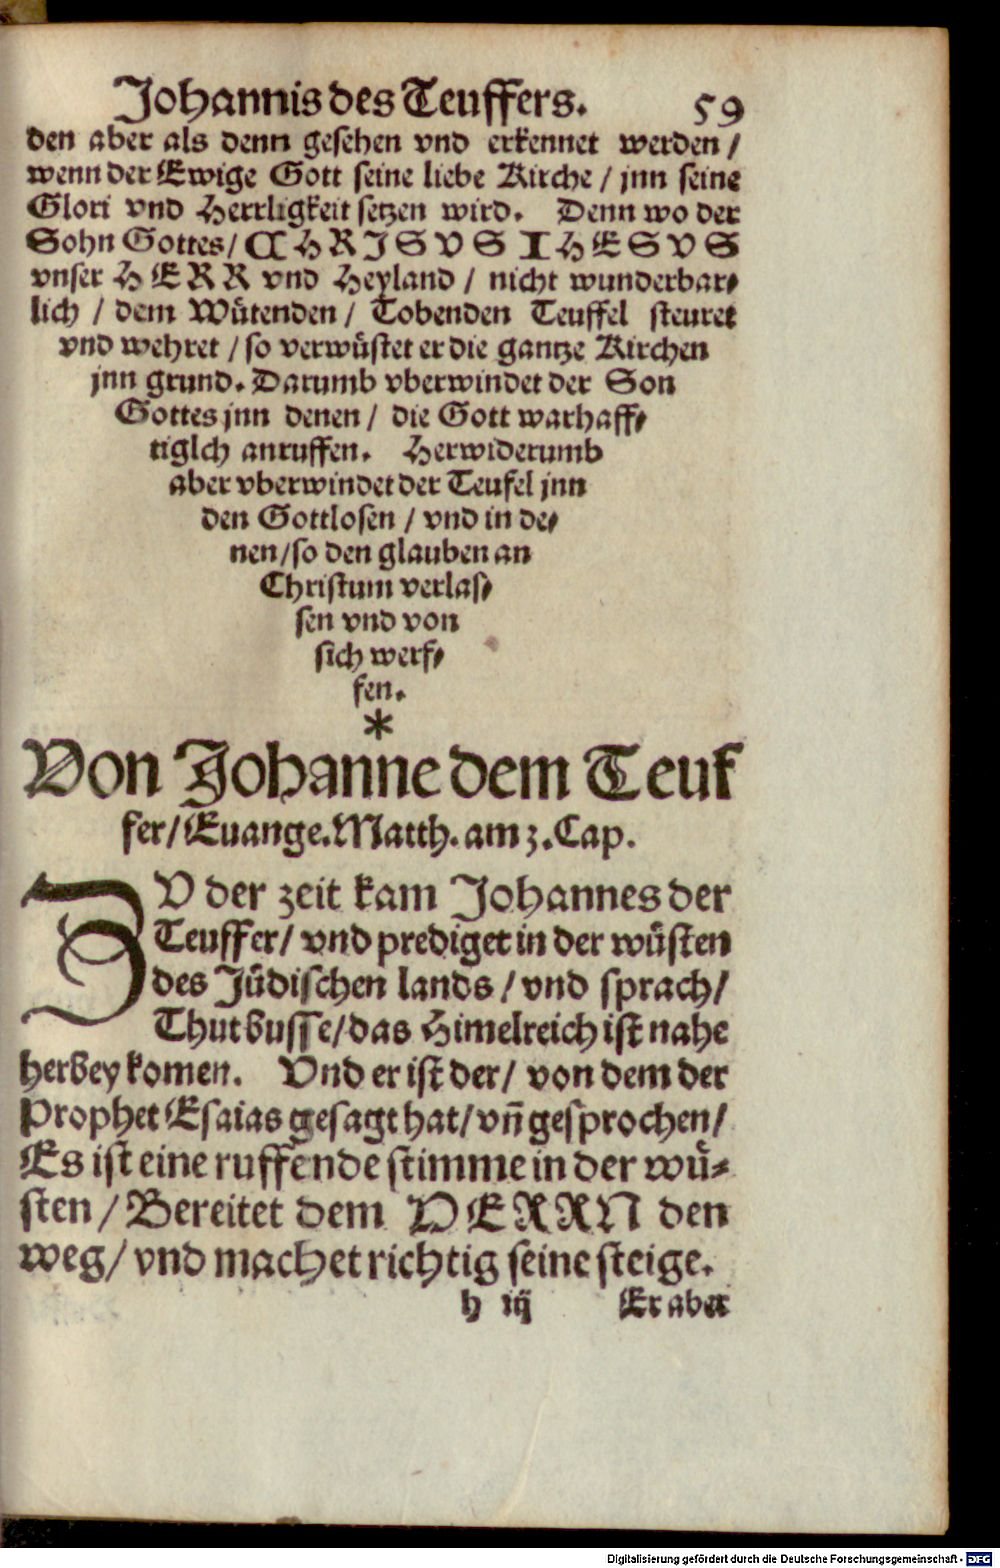 Johannis des Teuffers. 59
den aber als denn gesehen vnd erkennet werden /
wenn der Ewige Gott seine liebe Kirche / jnn seine
Glori vnd Herrligkeit setzen wird. Denn wo der
Sohn Gottes / CHRISVS IHESVS
vnser HERR vnd Heyland / nicht wunderbar⸗
lich / dem Wütenden / Tobenden Teuffel steuret
vnd wehret / so verwüstet er die gantze Kirchen
jnn grund. Darumb vberwindet der Son
Gottes jnn denen / die Gott warhaff⸗
tiglch anruffen. Herwiderumb
aber vberwindet der Teufel jnn
den Gottlosen / vnd in de⸗
nen / so den glauben an
Christum verlas⸗
sen vnd von
sich werf⸗
fen.
*
Von Johanne dem Teuf
fer / Euange. Matth. am 3. Cap.
ZV der zeit kam Johannes der
Teuffer / vnd prediget in der wüsten
des Jüdischen lands / vnd sprach /
Thut busse / das Himelreich ist nahe
herbey komen. Vnd er ist der / von dem der
Prophet Esaias gesagt hat / vn̄ gesprochen /
Es ist eine ruffende stimme in der wü⸗
sten / Bereitet dem HERRN den
weg / vnd machet richtig seine steige.
h iij Er aber
Digitalisierung gefördert durch die Deutsche Forschungsgemeinschaft - DFG